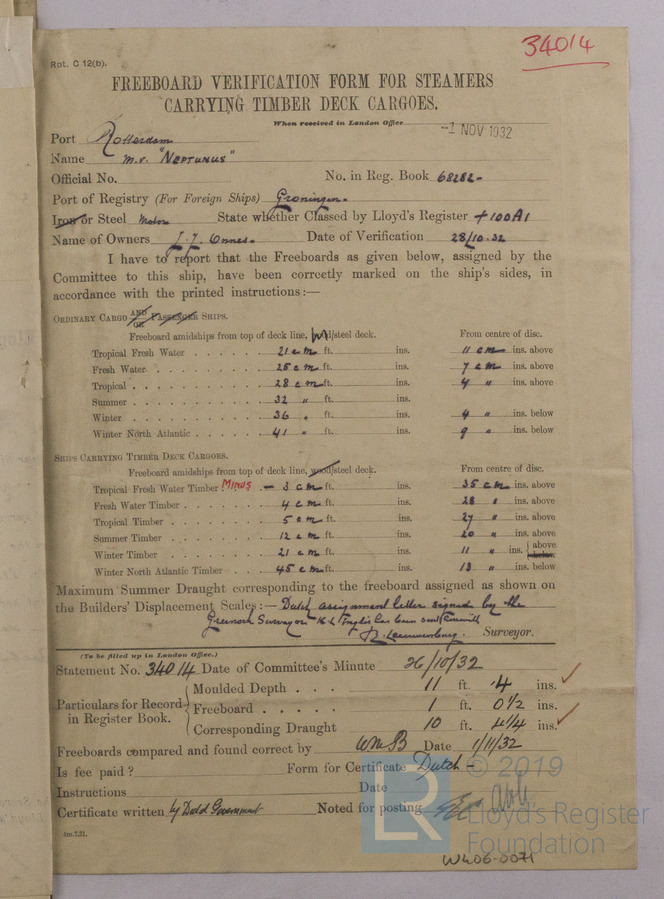 34014
Rpt. C 12(b).
FREEBOARD VERIFICATION FORM FOR STEAMERS
CARRYING TIMBER DECK CARGOES.
When received in London Office -1 NOV 1932
Port Rotterdam
Name m.v. "NEPTUNUS"
Official No. No. in Reg. Book 68282-
Port of Registry (For Foreign Ships) Groningen.
Iron or Steel Motor State whether Classed by Lloyd's Register +100A1
Name of Owners J. J. Onnes. Date of Verification 28/10.32
I have to report that the Freeboards as given below, assigned by the
Committee to this ship, have been correctly marked on the ship's sides, in
accordance with the printed instructions:—
ORDINARY CARGO AND OR PASSENGER SHIPS.
Freeboard amidships from top of deck line, wood/steel deck. From centre of disc.
Tropical Fresh Water . . . . . . 21 cm ft. ins. 11 cm ins. above
Fresh Water . . . . . . . 25 cm ft. ins. 7 cm ins. above
Tropical . . . . . . . . 28 cm ft. ins. 4 " ins. above
Summer . . . . . . . . 32 " ft. ins.
Winter . . . . . . . . 36 " ft. ins. 4 " ins. below
Winter North Atlantic . . . . . . 41 " ft. ins. 9 " ins. below
SHIPS CARRYING TIMBER DECK CARGOES.
Freeboard amidships from top of deck line, wood/steel deck. From centre of disc.
Tropical Fresh Water Timber MINUS - 3 cm ft. ins. 35 cm ins. above
Fresh Water Timber . . . . . . 4 cm ft. ins. 28 " ins. above
Tropical Timber . . . . . . . 5 cm ft. ins. 27 " ins. above
Summer Timber . . . . . . . 12 cm ft. ins. 20 " ins. above
Winter Timber . . . . . . . 21 cm ft. ins. 11 " ins. above below
Winter North Atlantic Timber . . . 45 cm ft. ins. 13 " ins. below
Maximum Summer Draught corresponding to the freeboard assigned as shown on
the Builders' Displacement Scales:— Dutch assignment letter signed by the
Surveyor has been sent herewith
Surveyor.
(To be filled up in London Office.)
Statement No. 34014 Date of Committee's Minute 26/10/32
Particulars for Record in Register Book.
Moulded Depth . . . 11 ft. .4 ins.
Freeboard . . . . . 1 ft. 0 1/2 ins.
Corresponding Draught 10 ft. 4 1/4 ins.
Freeboards compared and found correct by WMB Date 1/11/32
Is fee paid? Form for Certificate Dutch -
Instructions Date
Certificate written by Government Noted for posting
4m.7.31.
© 2019
LR
Lloyd's Register
Foundation
W406-0071